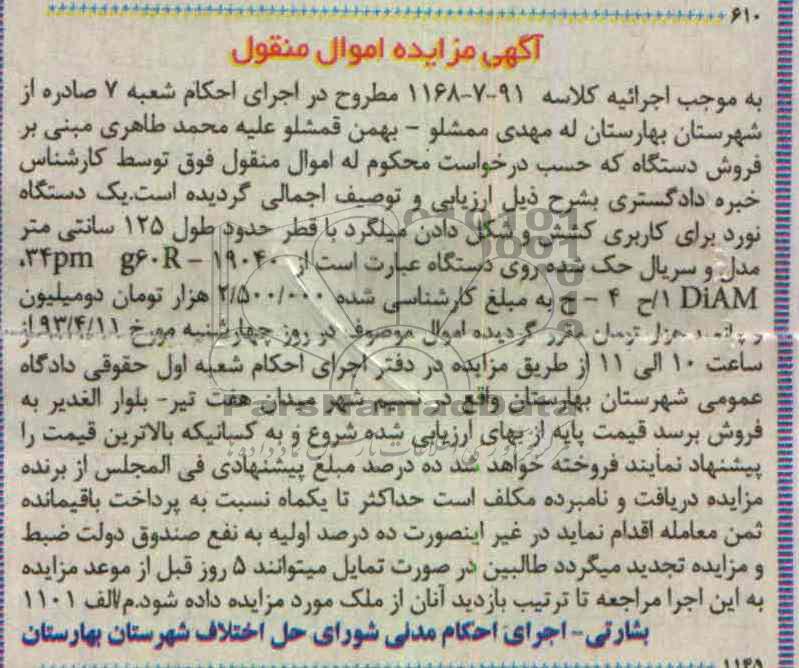 ۶۱۰
آگهی مزایده اموال منقول
به موجب اجرائیه کلاسه ۹۱-۷-۱۱۶۸ مطروح در اجرای احکام شعبه ۷ صادره از
شهرستان بهارستان له مهدی ممشلو - بهمن قمشلو علیه محمد طاهری مبنی بر
فروش دستگاه که حسب درخواست محکوم له اموال منقول فوق توسط کارشناس
خبره دادگستری بشرح ذیل ارزیابی و توصیف اجمالی گردیده است.یک دستگاه
نورد برای کاربری کشش و شکل دادن میلگرد با قطر حدود طول ۱۲۵ سانتی متر
مدل و سریال حک شده روی دستگاه عبارت است از ۱۹۰۴۰ - g۶۰R ۳۴pm،
DiAM ۱/ح ۴ - ج به مبلغ کارشناسی شده ۲/۵۰۰/۰۰۰ هزار تومان دومیلیون
و پانصد هزار تومان مقرر گردیده اموال موصوف در روز چهارشنبه مورخ ۹۳/۴/۱۱ از
ساعت ۱۰ الی ۱۱ از طریق مزایده در دفتر اجرای احکام شعبه اول حقوقی دادگاه
عمومی شهرستان بهارستان واقع در نسیم شهر میدان هفت تیر- بلوار الغدیر به
فروش برسد قیمت پایه از بهای ارزیابی شده شروع و به کسانیکه بالاترین قیمت را
پیشنهاد نمایند فروخته خواهد شد ده درصد مبلغ پیشنهادی فی المجلس از برنده
مزایده دریافت و نامبرده مکلف است حداکثر تا یکماه نسبت به پرداخت باقیمانده
ثمن معامله اقدام نماید در غیر اینصورت ده درصد اولیه به نفع صندوق دولت ضبط
و مزایده تجدید میگردد طالبین در صورت تمایل میتوانند ۵ روز قبل از موعد مزایده
به این اجرا مراجعه تا ترتیب بازدید آنان از ملک مورد مزایده داده شود.م/الف ۱۱۰۱
بشارتی- اجرای احکام مدنی شورای حل اختلاف شهرستان بهارستان
ParsNamadData